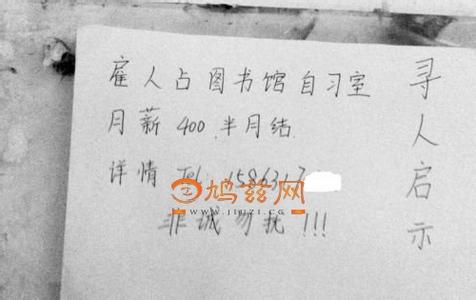 寻人启示
雇人占图书馆自习室
月薪 400 半月结
详情 Tel: 1586317
非诚勿扰!!!
鸠兹网
www.jiuzi.cc